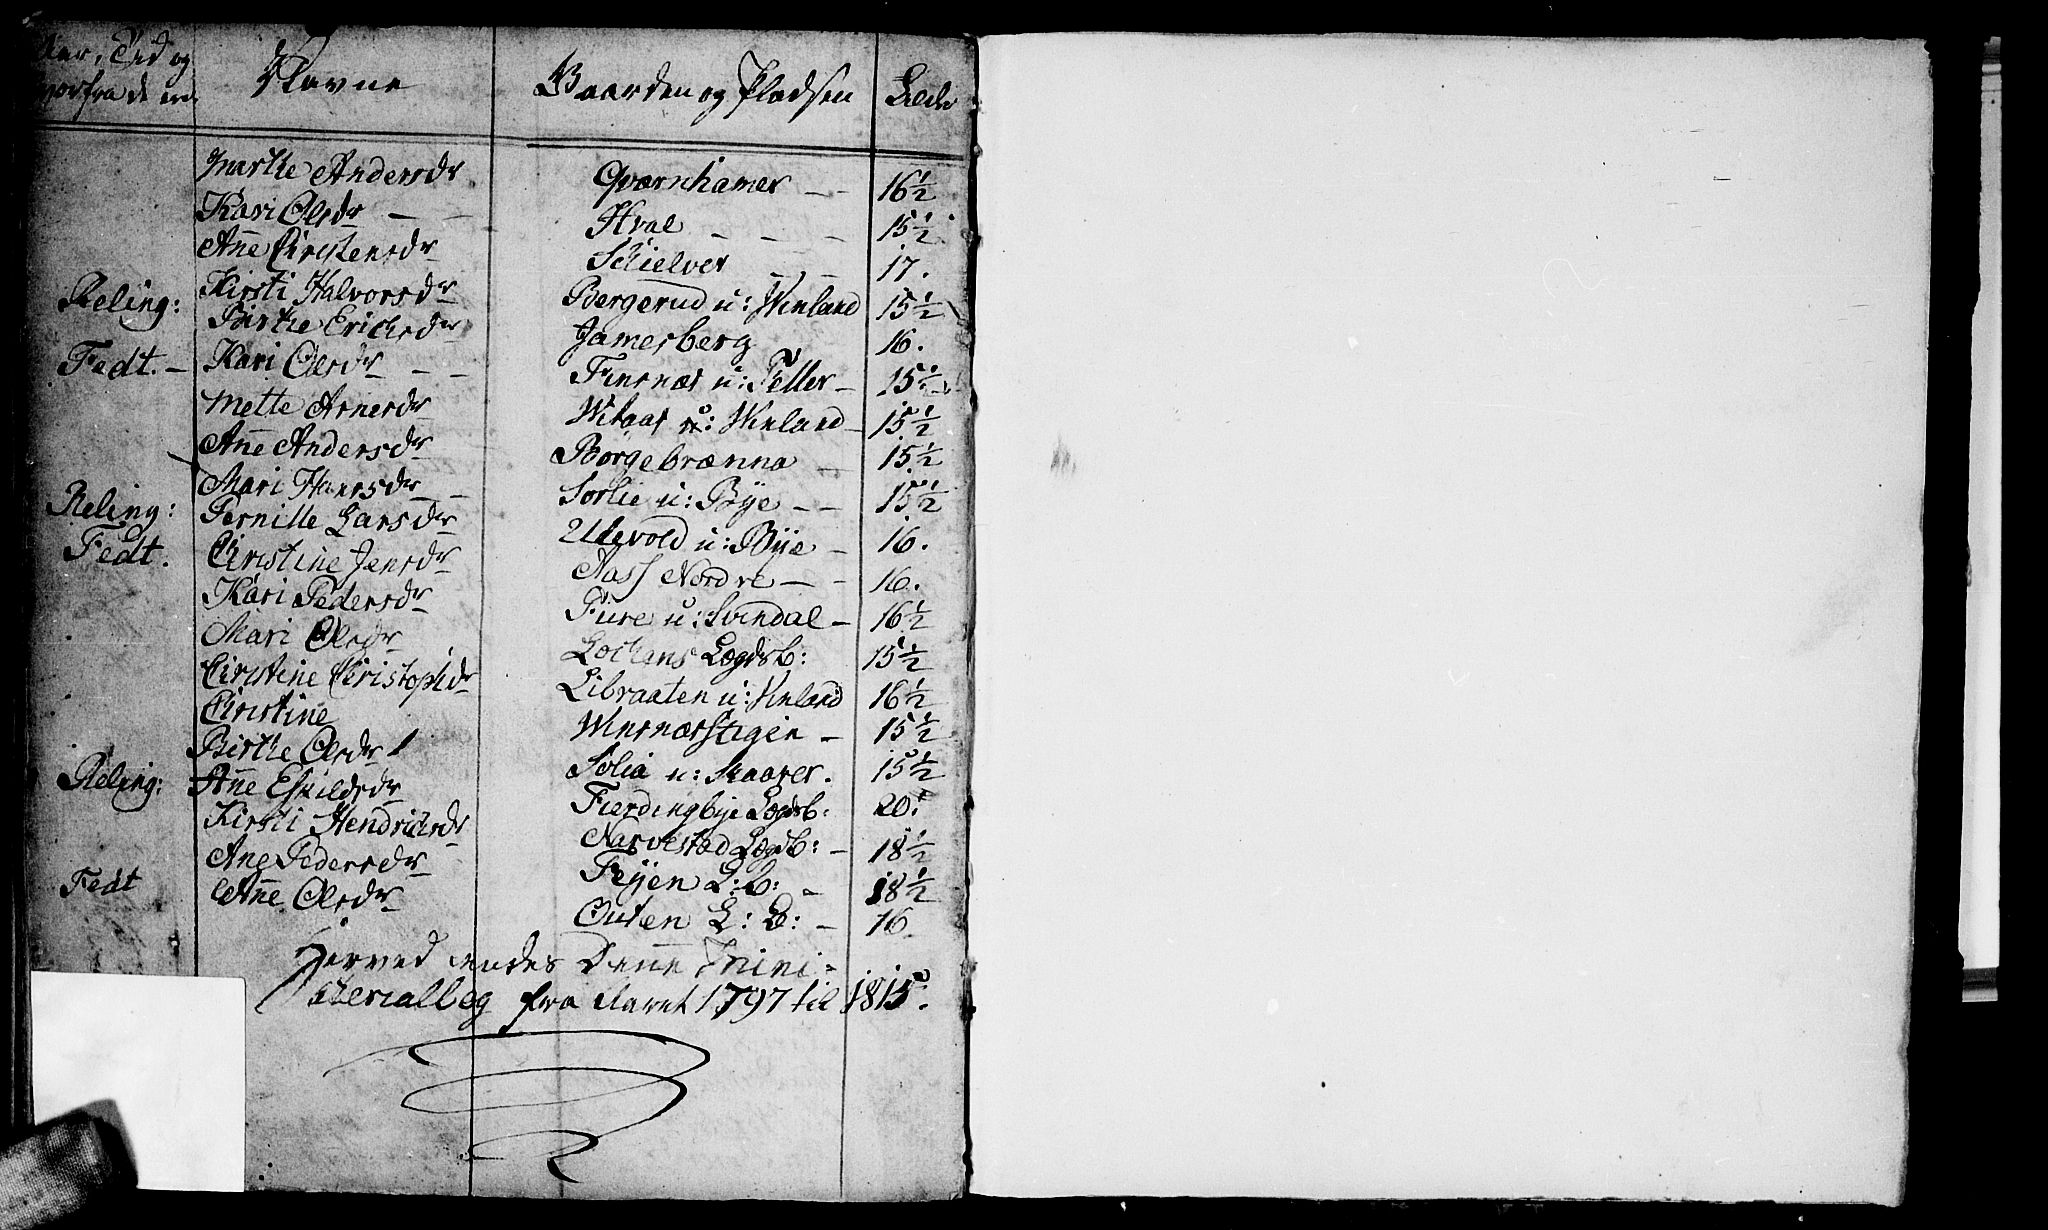 Aar, Tid og Navne Gaarden og Pladsen Alder
hvorfra de ere
Marthe Andersdr Qværnhamer - - 16 1/2
Kari Olesdr - - Hval - - - 15 1/2
Añe Christensdr Schielver - - 17.
Reling: Kirsti Halvorsdr Bergerud u: Winland 15 1/2
Birthe Erichsdr Jamerberg 16.
Fedt. - Kari Olesdr - - Finsnæs u: Feller - 15 1/2
Mette Arnesdr u: Winland - 15 1/2
Añe Andersdr Borgebrænna - 15 1/2
Mari Hansdr - Sorlie u: Bye - - 15 1/2
Reling: Pernille Larsdr Ullevold u: Bye - 16.
Fedt. Christine Jensdr Aass Nordre - - 16.
Kari Pedersdr Fiure u: Svindal - 16 1/2
Mari Olesdr Lochens Lægdsb: 15 1/2
Christine Christophdr Libraaten u: Vinland 16 1/2
Christine Winsnærstigen - 15 1/2
Birthe Olesdr Solia u: Skaarer. 15 1/2
Reling: Añe Eskildsdr Fierdingbye Lægdsb: 20.
Kirsti Hendrichsdr Narvestad Lægdsb: - 18 1/2
Ane Pedersdr Feyen L: B: - 18 1/2
Fedt Añe Olesdr Outen L: B: - 16
Herved endes Deñe Mini-
sterialbog fra Aaret 1797 til 1815.